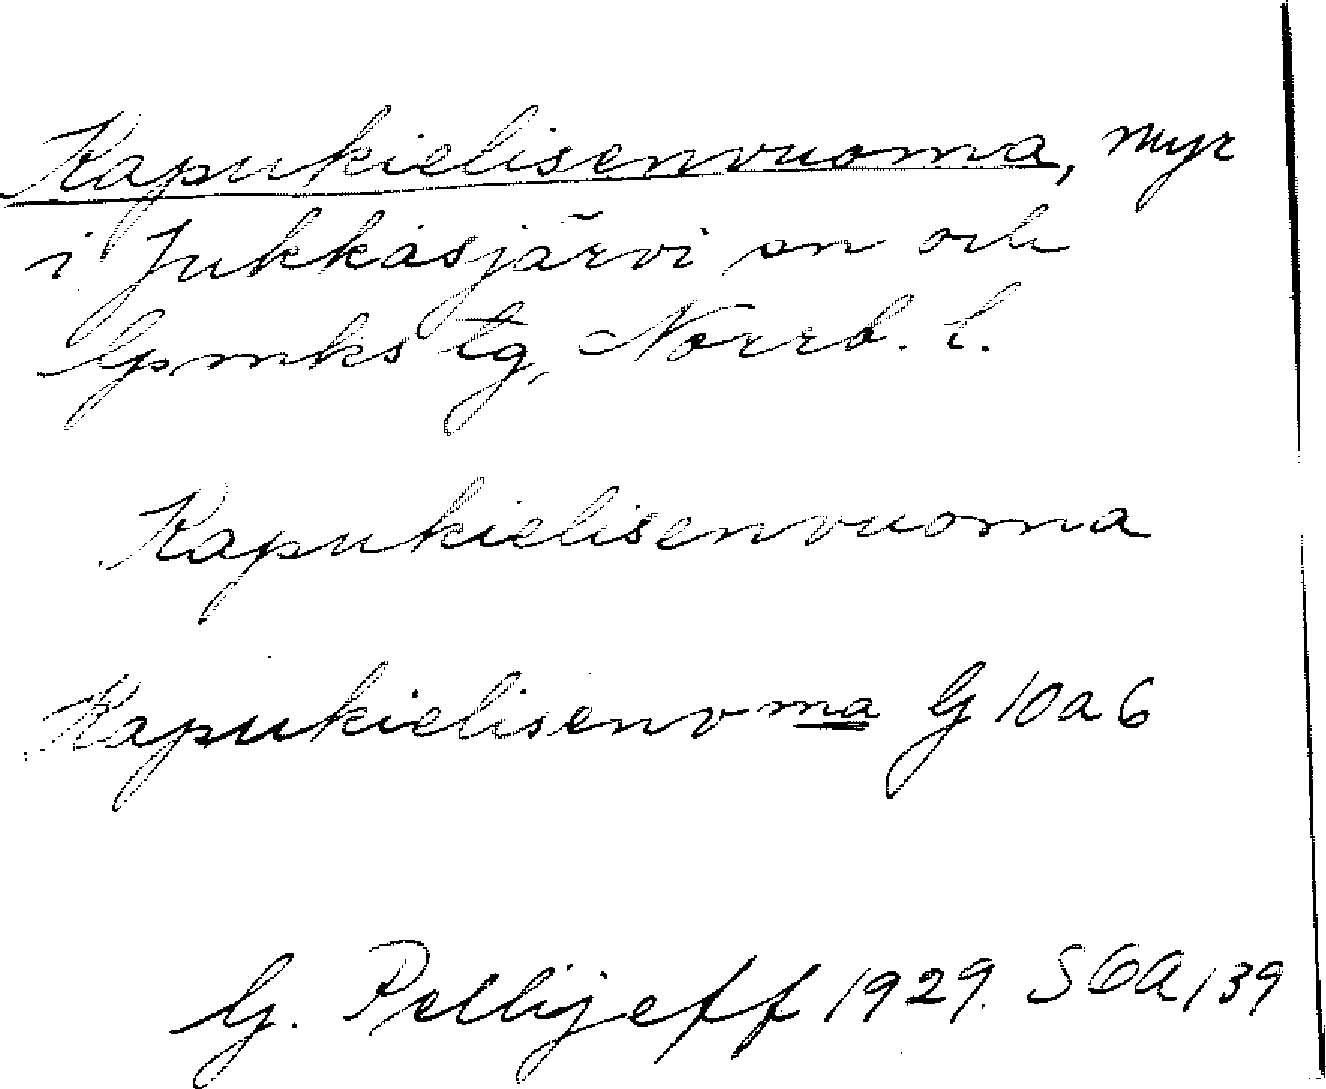 Kapukielisenvuoma, myr
i Jukkasjärvi sn och
Gmks tg, Norrb. l.
Kapukielisenvuoma
Kapukielisenvma G 10a6
G. Pellijeff 1929. SOA, 39